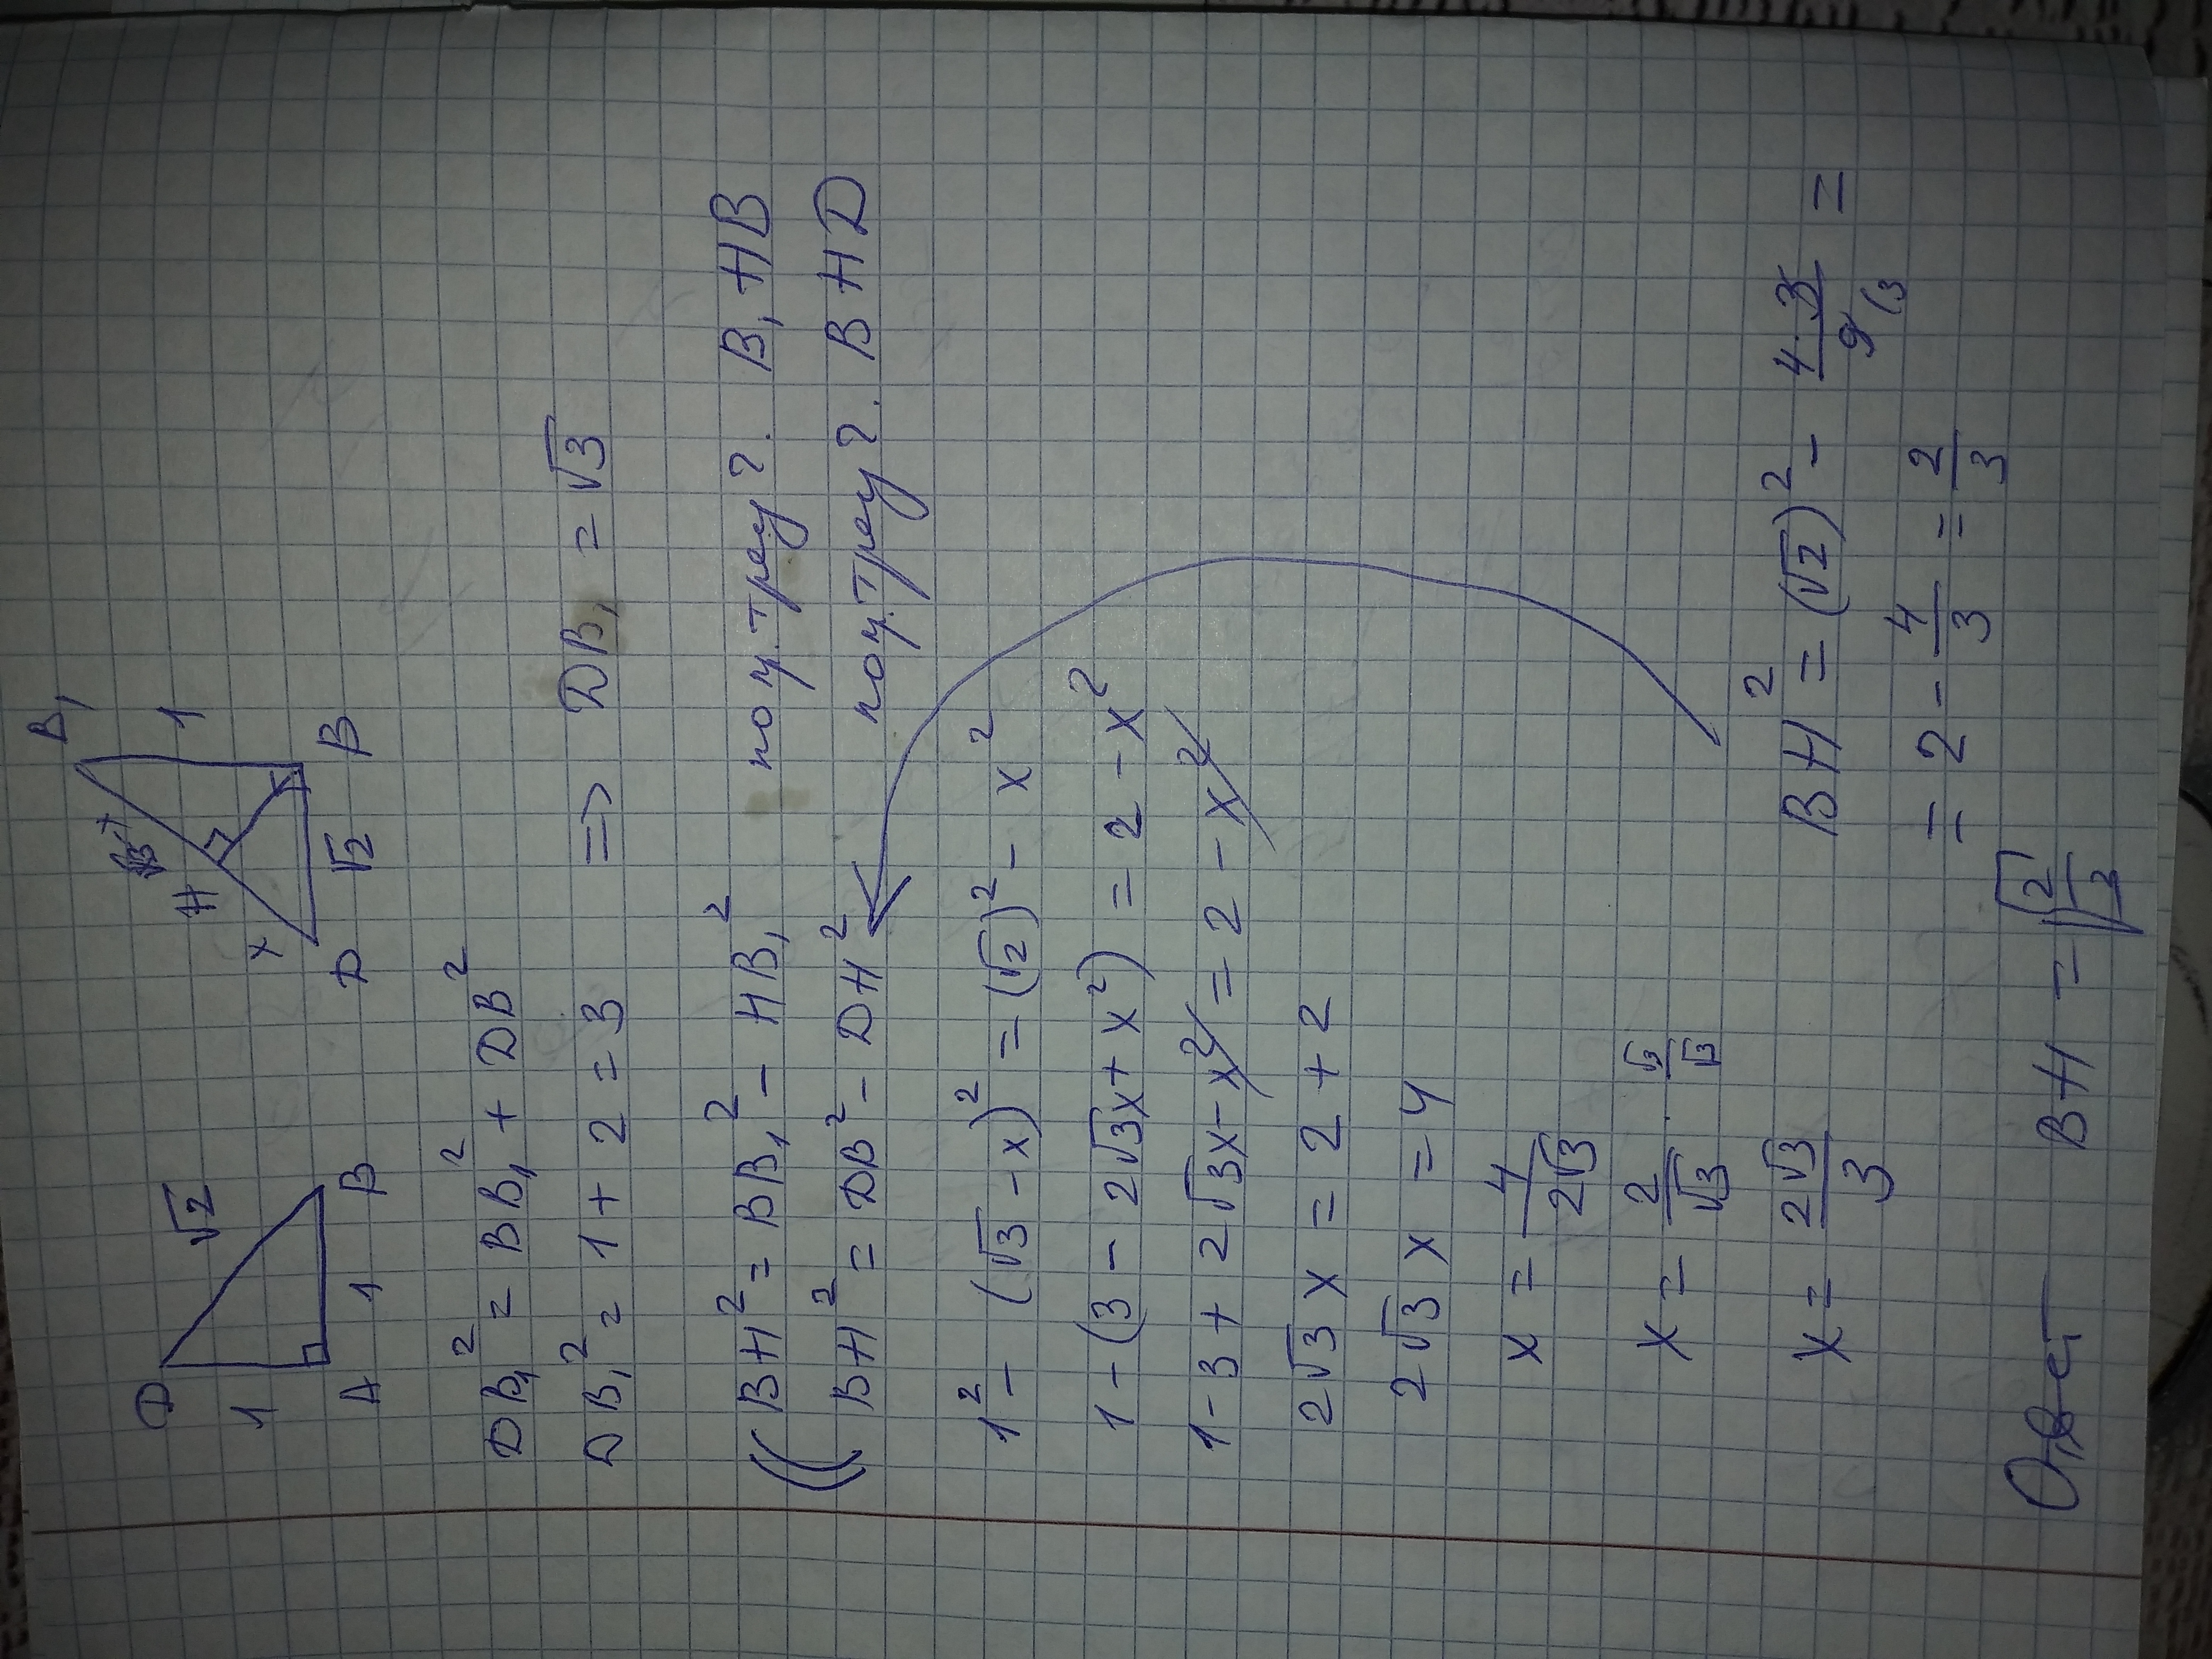 D √2 1 A 1 B
B₁ 1 √3-x H x D √2 B
DB₁² = BB₁² + DB²
DB₁² = 1 + 2 = 3 => DB₁ = √3
BH² = BB₁² - HB₁² по т. треуг. B₁HB
BH² = DB² - DH² по т. треуг. BHD
1² - (√3 - x)² = (√2)² - x²
1 - (3 - 2√3x + x²) = 2 - x²
1 - 3 + 2√3x - x² = 2 - x²
2√3x = 2 + 2
2√3x = 4
x = 4/2√3
x = 2/√3 · √3/√3
x = 2√3/3 BH² = (√2)² - 4·3/9(3 =
= 2 - 4/3 = 2/3
Ответ BH = √2/3